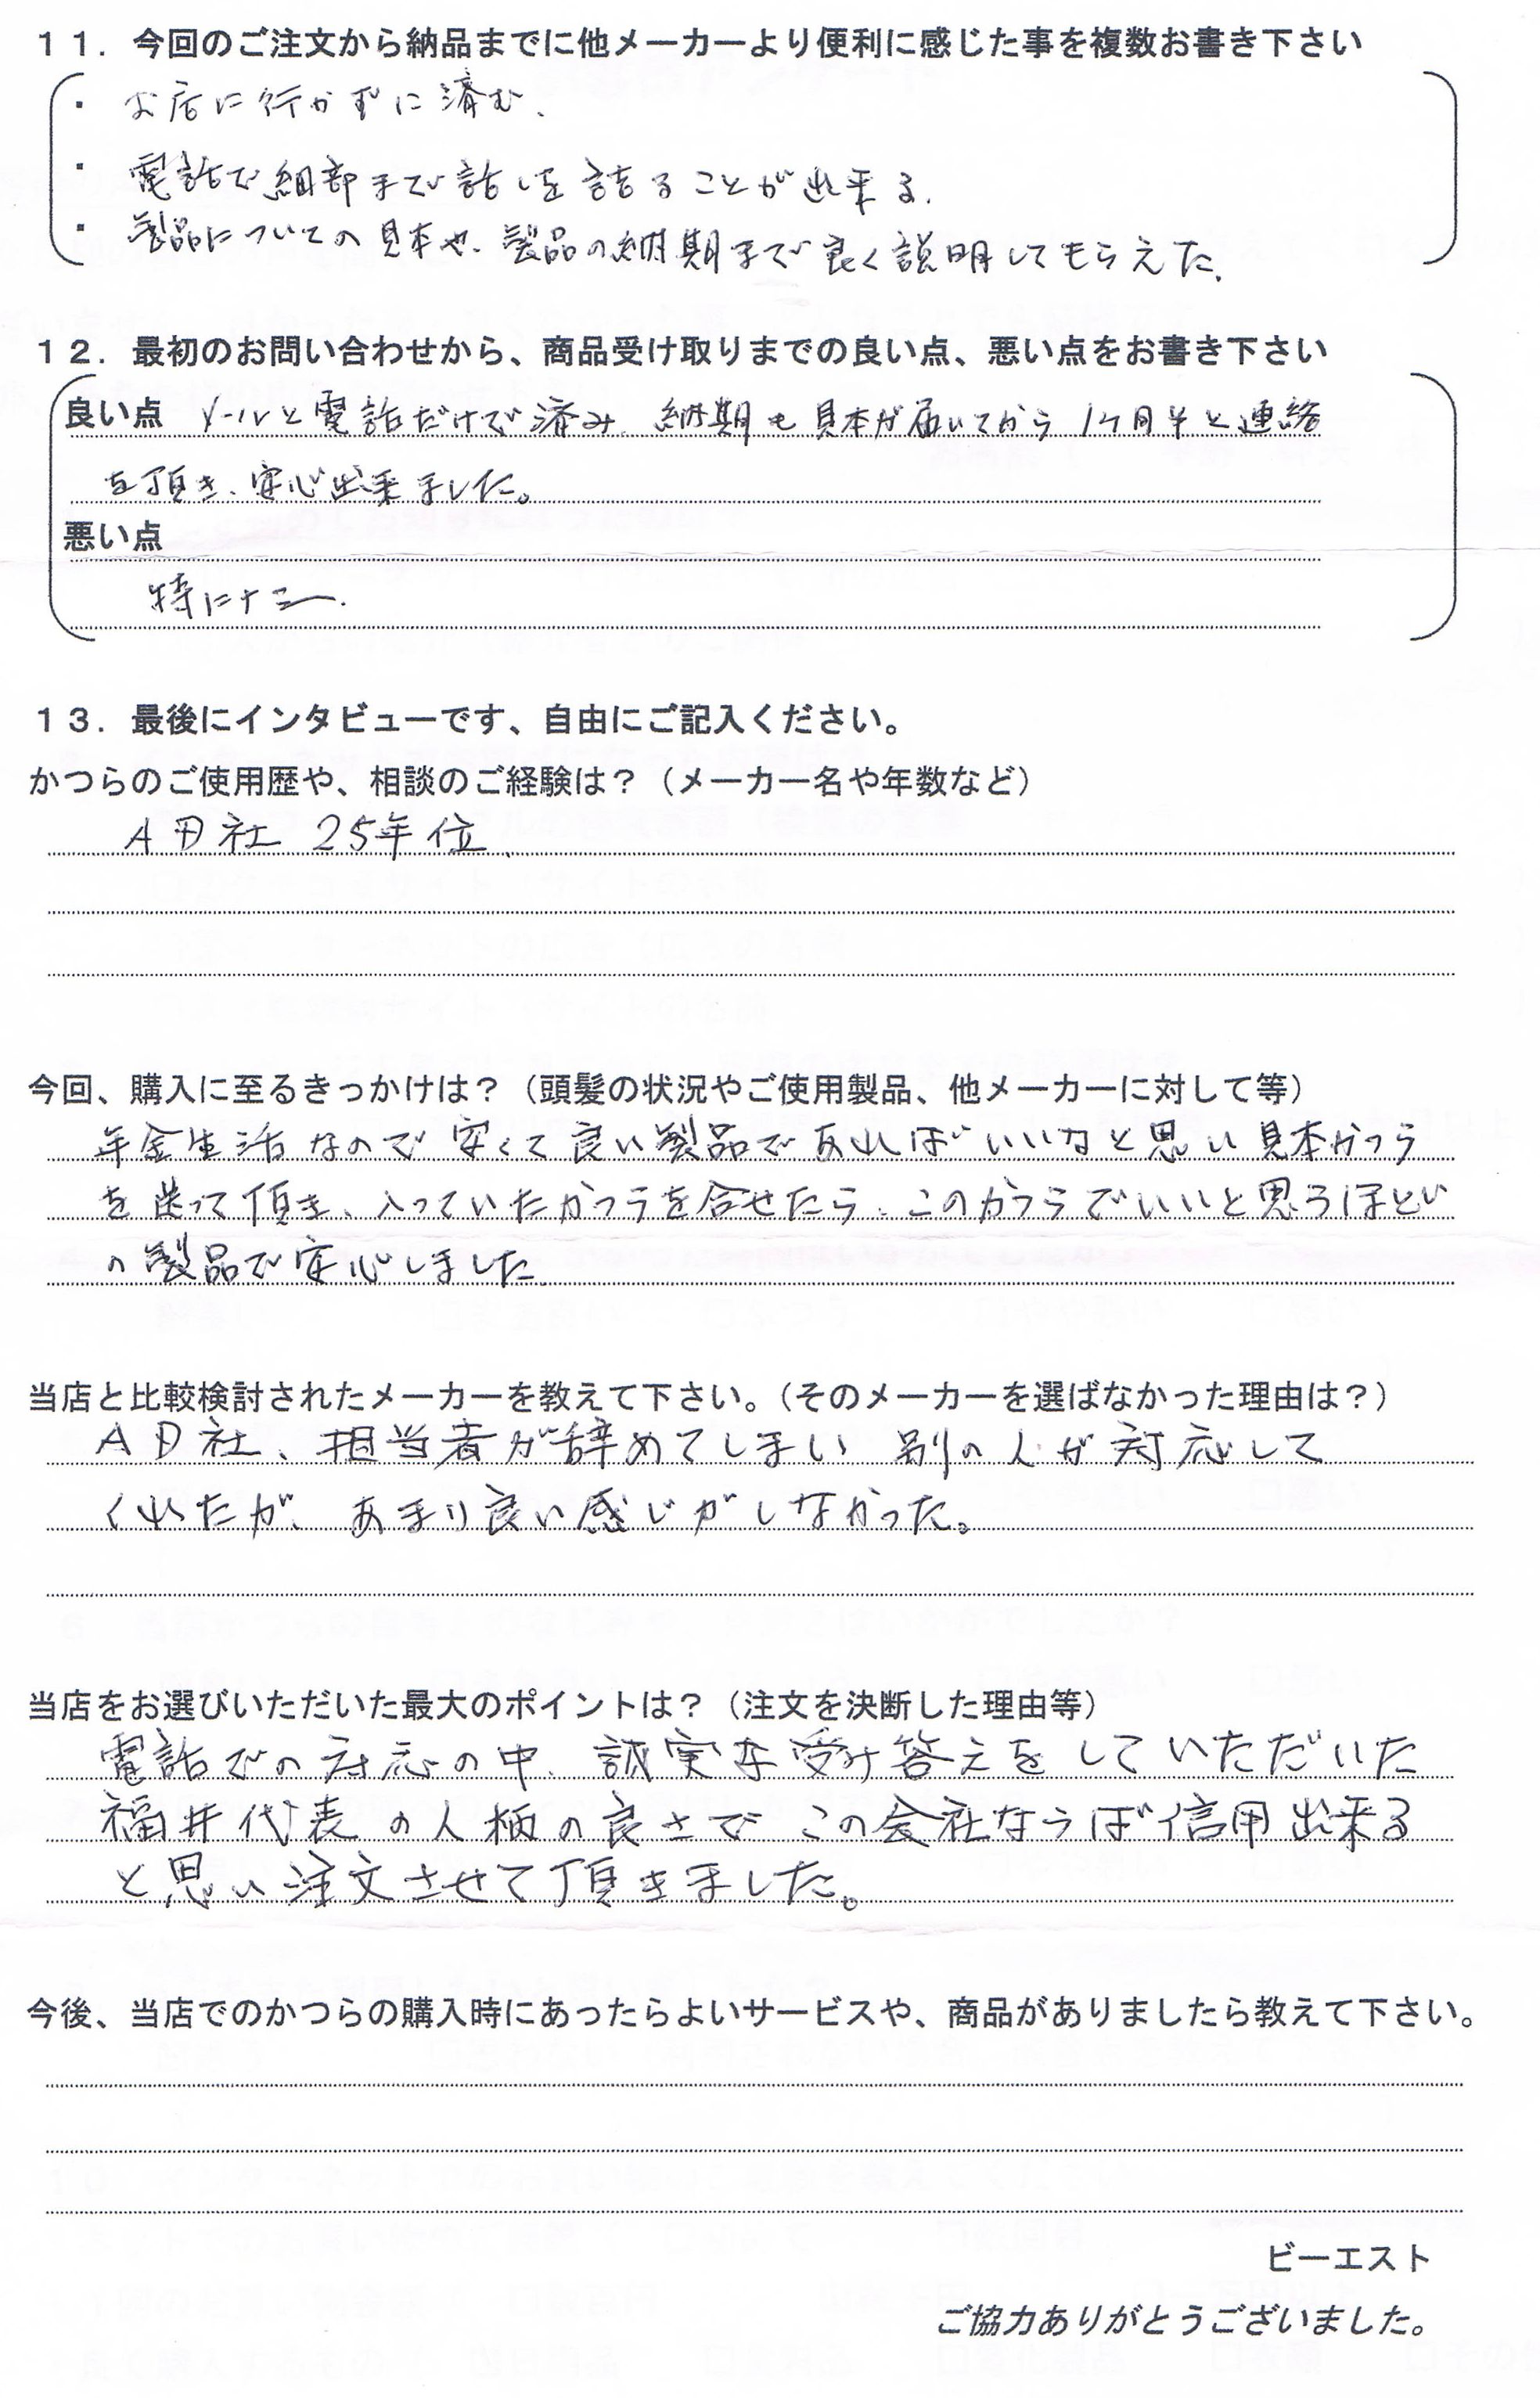 １１．今回のご注文から納品までに他メーカーより便利に感じた事を複数お書き下さい
・ お店に行かずに済む.
・ 電話で細部まで話しを詰ることが出来る.
・ 製品についての見本や、製品の納期まで良く説明してもらえた.
１２．最初のお問い合わせから、商品受け取りまでの良い点、悪い点をお書き下さい
良い点 メールと電話だけで済み、納期も見本が届いてから1ヶ月半と連絡
を頂き、安心出来ました。
悪い点
特にナシ.
１３．最後にインタビューです、自由にご記入ください。
かつらのご使用歴や、相談のご経験は？（メーカー名や年数など）
AD社 25年位.
今回、購入に至るきっかけは？（頭髪の状況やご使用製品、他メーカーに対して等）
年金生活なので安くて良い製品であればいいなと思い見本かつら
を送って頂き、入っていたかつらを合せたら、このかつらでいいと思うほどゝ
の製品で安心しました.
当店と比較検討されたメーカーを教えて下さい。（そのメーカーを選ばなかった理由は？）
AD社、担当者が辞めてしまい 別の人が対応して
くれたが、あまり良い感じがしなかった。
当店をお選びいただいた最大のポイントは？（注文を決断した理由等）
電話での対応の中、誠実な受け答えをしていただいた
福井代表の人柄の良さで この会社ならば信用出来る
と思い注文させて頂きました。
今後、当店でのかつらの購入時にあったらよいサービスや、商品がありましたら教えて下さい。
ビーエスト
ご協力ありがとうございました。